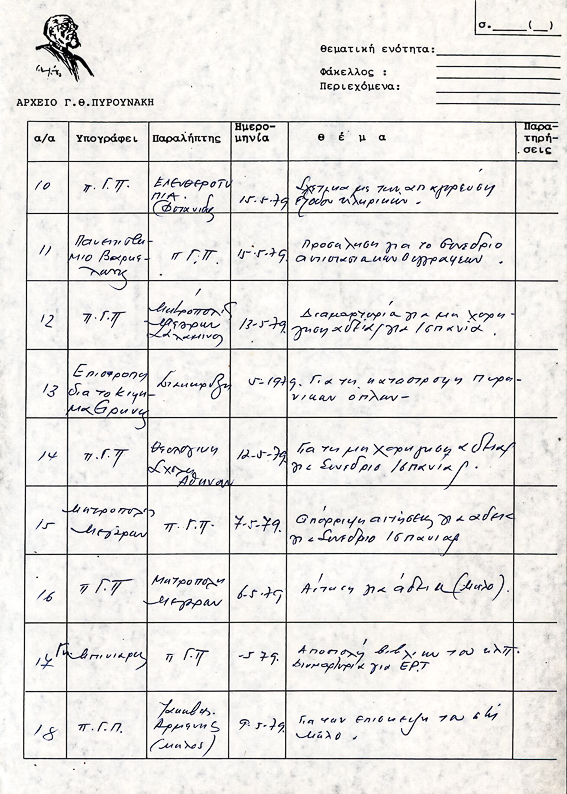 σ.____(__)
θεματική ενότητα:
Φάκελλος :
Περιεχόμενα:
ΑΡΧΕΙΟ Γ.Θ.ΠΥΡΟΥΝΑΚΗ
α/α Υπογράφει Παραλήπτης Ημερο-μηνία θ έ μ α Παρα-τηρή-σεις
10 π.Γ.Π. ΕΛΕΥΘΕΡΟΤΥ
ΠΙΑ.
15-5-79 Σχετικα με την απαγόρευση
εξόδου κληρικων.
11 Πανεπιστη-
μιο
π Γ.Π. 15-5-79. Προσκληση για το συνεδριο
12 π.Γ.Π Μητροπολις
Μεγαρων
Σαλαμινος
13-5-79 Διαμαρτυρία για μη χορη-
γηση αδείας για Ισπανία.
13 Επιτροπη
δια το Κινη-
μα Ειρηνης
Διακηρυξη 5-1979. Για τη καταστροφη πυρη-
νικων οπλων-
14 π.Γ.Π Θεολογικη
Σχολη
Αθηνων
12-5-79 Για τη μη χορηγηση αδειας
για Συνεδριο Ισπανιας.
15 Μητροπολις
Μεγαρων
π.Γ.Π. 7-5-79. απόρριψη αιτήσεως για αδεια
για Συνεδριο Ισπανιας
16 π Γ.Π Μητροπολη
Μεγαρων
6-5-79 Αίτηση για άδεια (Μηλο).
17 π Γ.Π -5 79. Αποστολή βιβλιων του κλπ.
Διαμαρτυρία για ΕΡΤ
18 π.Γ.Π. Ιακωβ.
Αρμενης
(Μηλος)
9-5-79. Για την επισκεψη του στη
Μηλο.